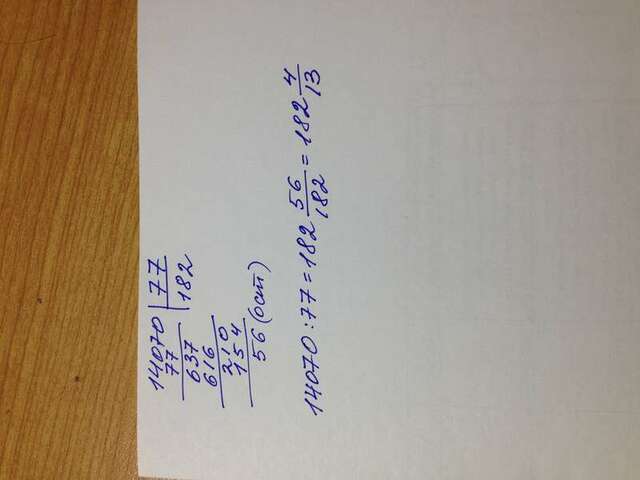 14070 | 77
77 | 182
637
616
210
154
56 (ост)
14070 : 77 = 182 56/182 = 182 4/13